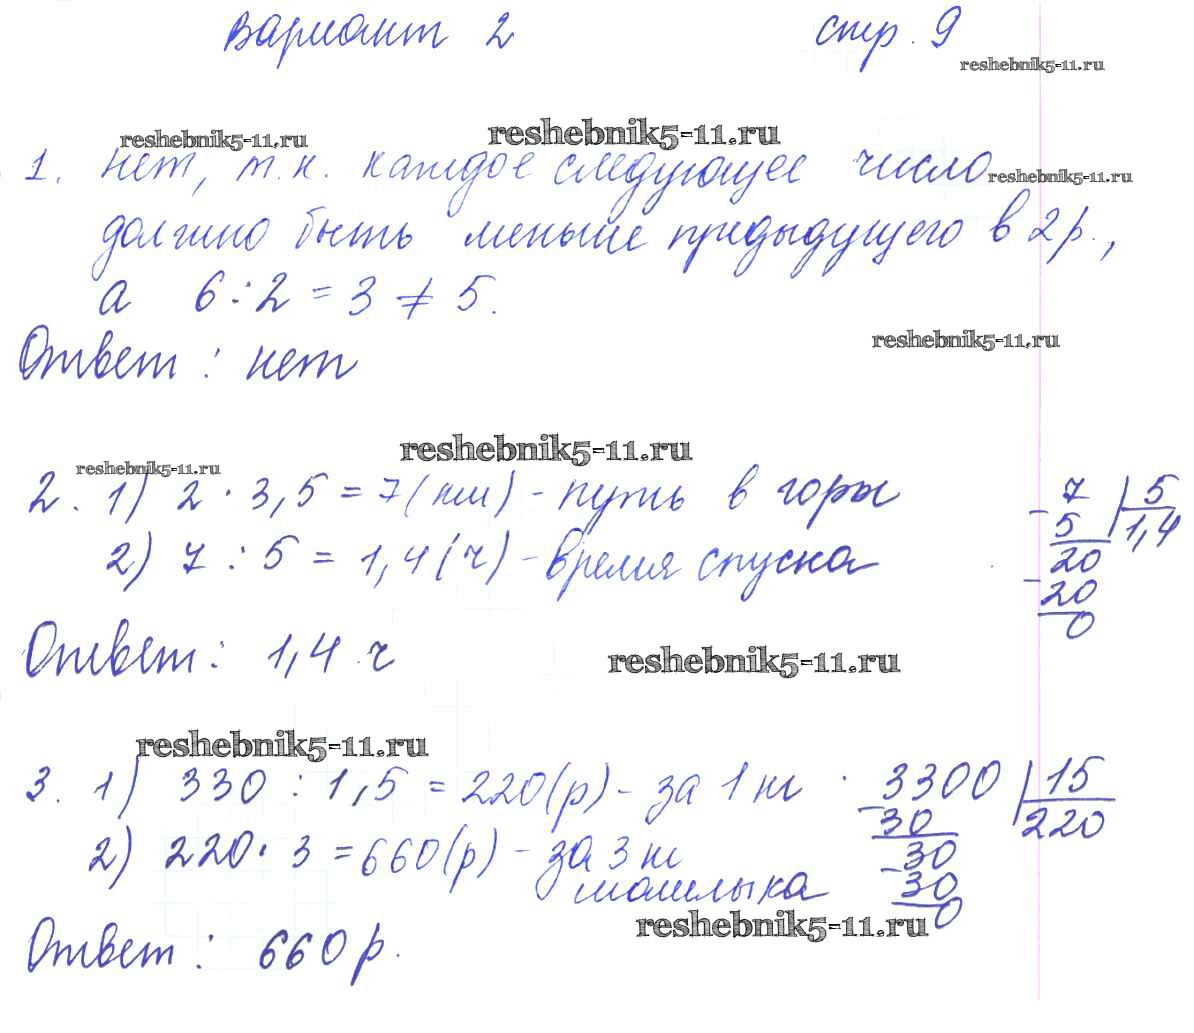 Вариант 2 стр. 9
reshebnik5-11.ru
reshebnik5-11.ru reshebnik5-11.ru
1. нет, т.к. каждое следующее число
reshebnik5-11.ru
должно быть меньше предыдущего в 2 р.,
а 6 : 2 = 3 ≠ 5.
reshebnik5-11.ru
Ответ : нет
reshebnik5-11.ru
reshebnik5-11.ru
2. 1) 2 · 3,5 = 7 (км) - путь в горы
2) 7 : 5 = 1,4 (ч) - время спуска
7 | 5
- 5 1,4
20
- 20
0
Ответ : 1,4 ч
reshebnik5-11.ru
reshebnik5-11.ru
3. 1) 330 : 1,5 = 220 (р) - за 1 кг
2) 220 · 3 = 660 (р) - за 3 кг
3300 | 15
- 30 220
30
- 30
0
reshebnik5-11.ru
Ответ : 660 р.